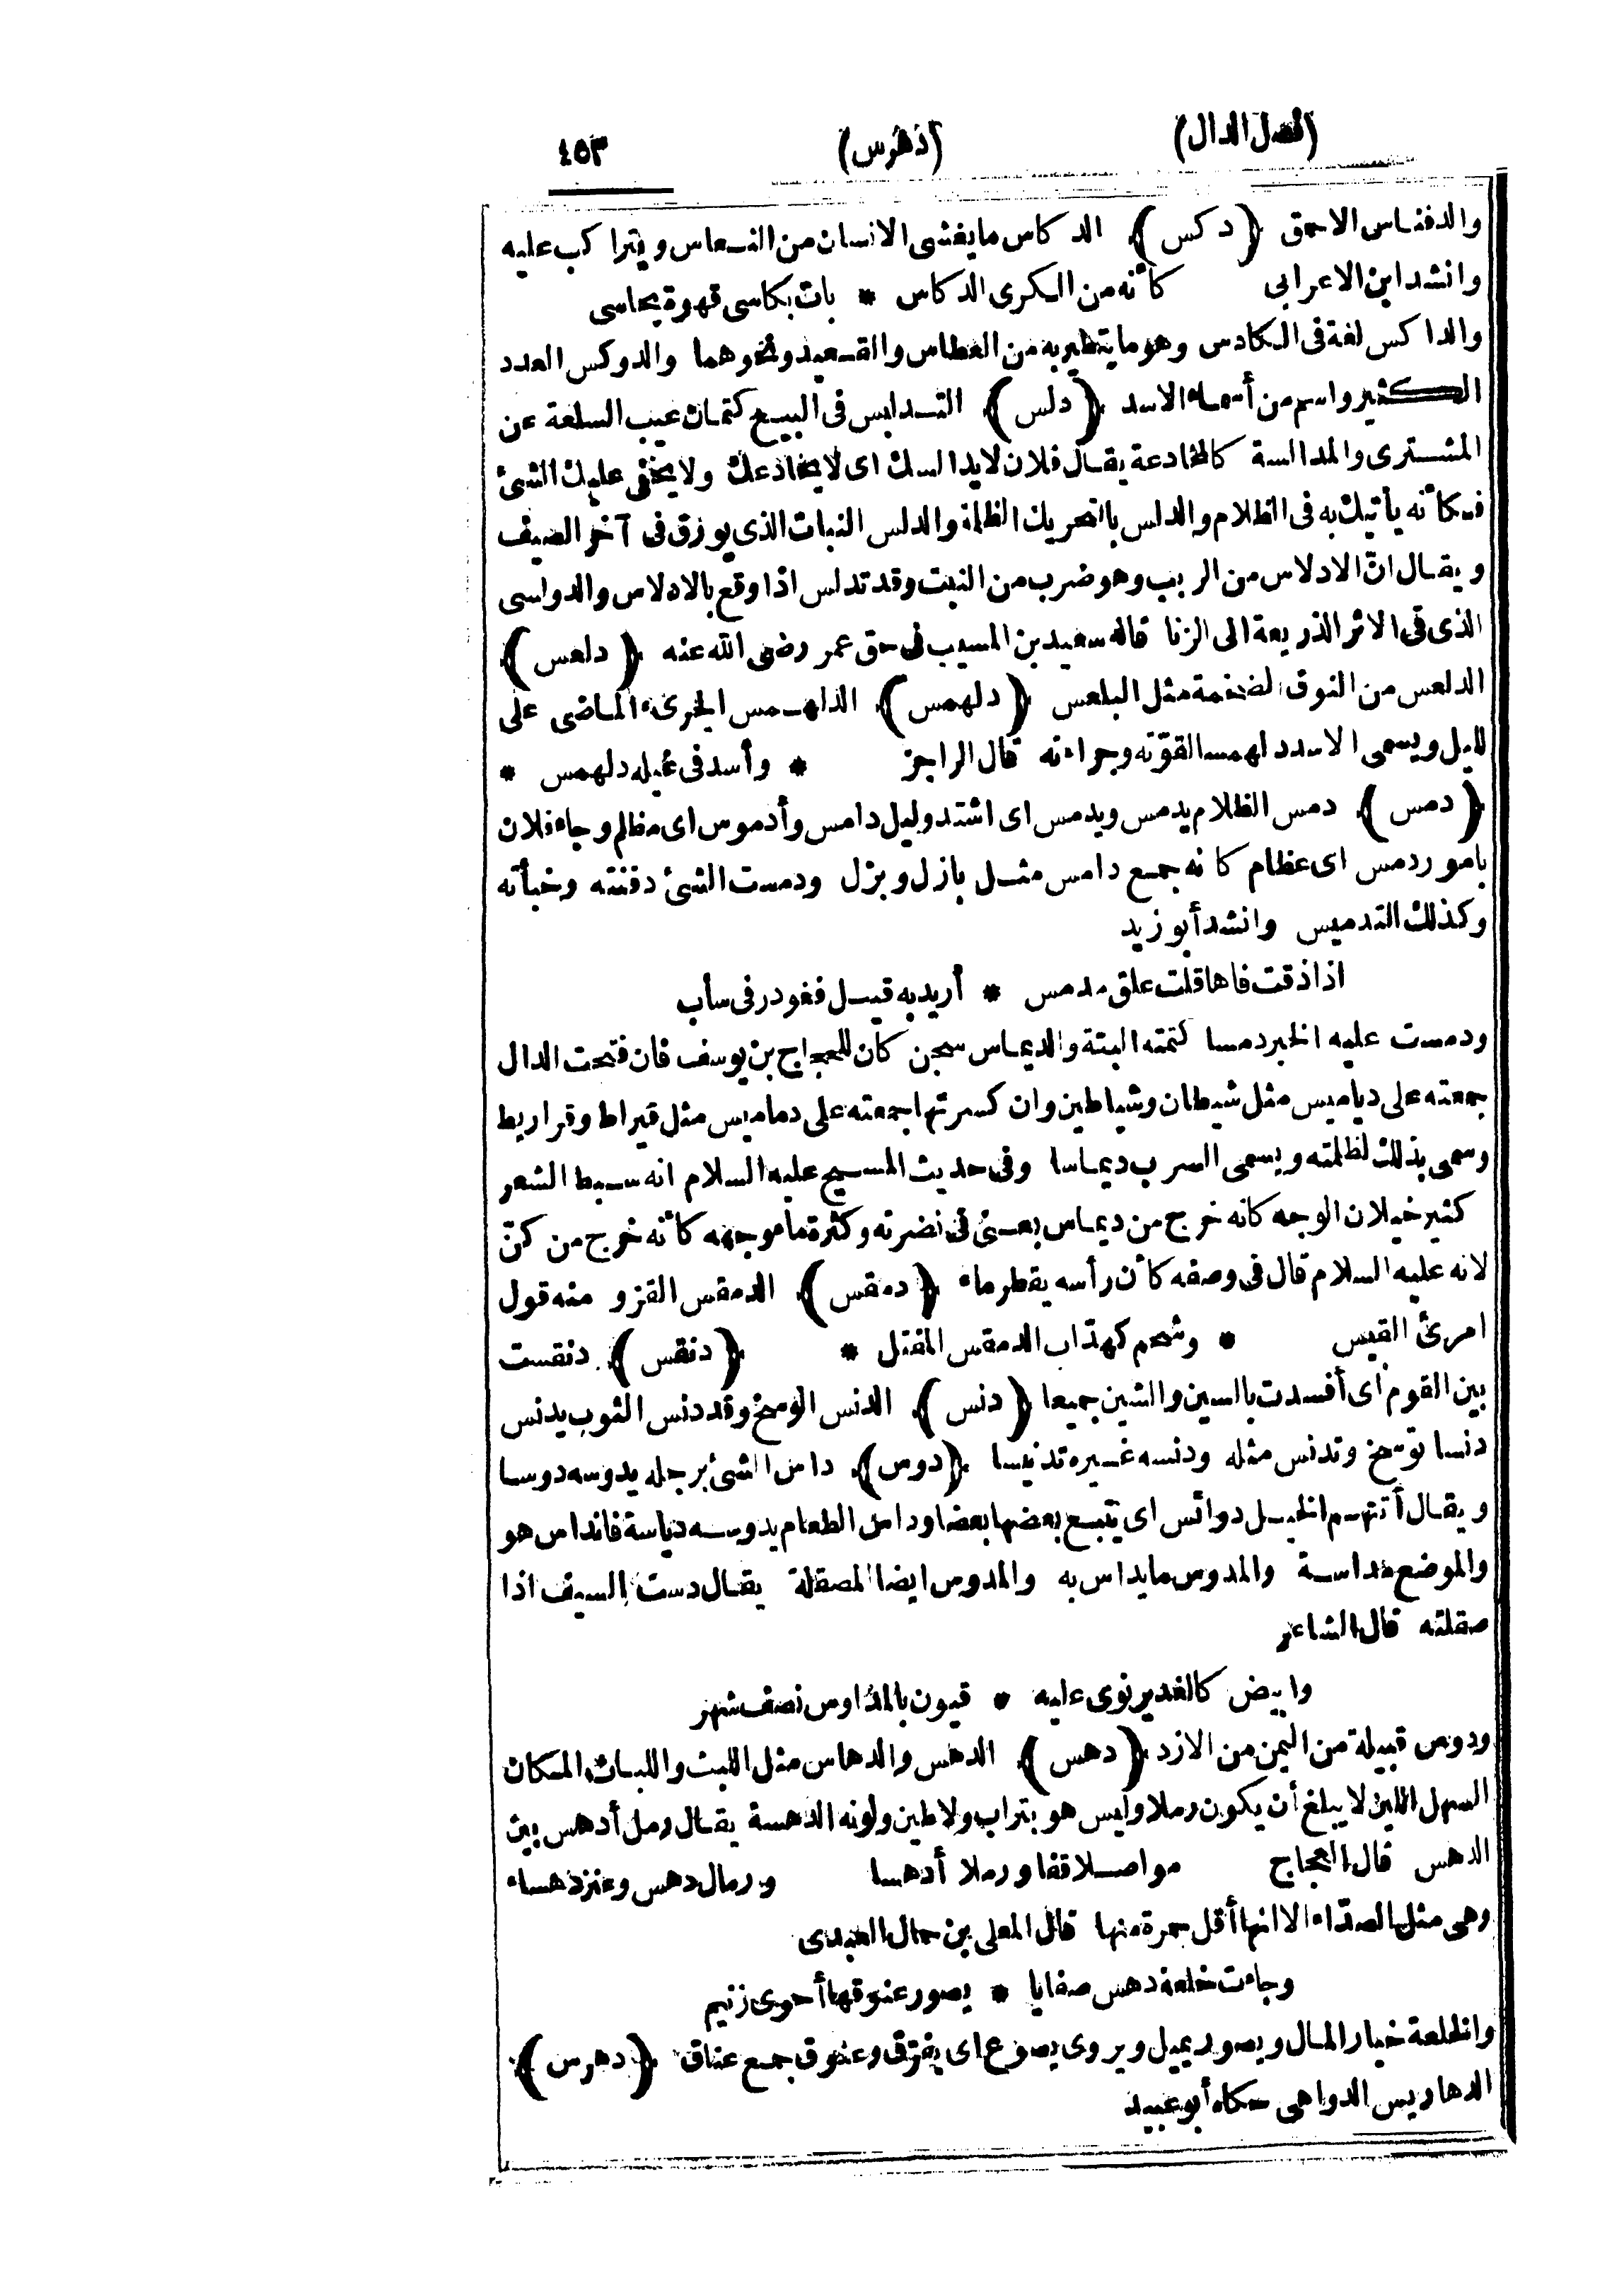 (فصل الدال) (دهرس) ٤٥٣
والدفناس الاحمق ﴿ دكس ﴾ الدكاس مايغشى الانسان من النعاس ويتراكب عليه
وانشد ابن الاعرابى كأنه من الكرى الدكاس * بات بكاسى قهوة يحاسى
والداكس لغة فى الكادس وهو مايتطير به من العطاس والقعيد ونحوهما والدوكس العدد
الكثير واسم من أسماء الاسد ﴿ دلس ﴾ التدليس فى البيع كتمان عيب السلعة عن
المشترى والمدالسة كالمخادعة يقال فلان لايدالسك اى لايخادعك ولايخفى عليك الشئ
فكأنه يأتيك به فى الظلام والدلس بالتحريك الظلمة والدلس النبات الذى يورق فى آخر الصيف
ويقال انّ الادلاس من الربب وهو ضرب من النبت وقد تدلس اذا وقع بالادلاس والدولسى
الذى فى الاثر الذريعة الى الزنا قاله سعيد بن المسيب فى حق عمر رضى الله عنه ﴿ دلعس ﴾
الدلعس من النوق الضخمة مثل البلعس ﴿ دلهمس ﴾ الدلهمس الجرىء الماضى على
الليل ويسمى الاسد دلهمسا لقوّته وجراءته قال الراجز * وأسد فى غيله دلهمس *
﴿ دمس ﴾ دمس الظلام يدمس ويدمس اى اشتد وليل دامس وأدموس اى مظلم وجاء فلان
بامور دمس اى عظام كانه جمع دامس مثل بازل وبزل ودمست الشئ دفنته وخبأته
وكذلك التدميس وانشد أبو زيد
اذا ذقت فاها قلت علق مدمس * أريد به قيل فغودر فى سأب
ودمست عليه الخبر دمسا كتمته البتة والديماس سجن كان للحجاج بن يوسف فان فتحت الدال
جمعته على دياميس مثل شيطان وشياطين وان كسرتها جمعته على دماميس مثل قيراط وقراريط
وسمى بذلك لظلمته ويسمى السرب ديماسا وفى حديث المسيح عليه السلام انه سبط الشعر
كثير خيلان الوجه كانه خرج من ديماس يعنى فى نضرته وكثرة ماء وجهه كأنه خرج من كنّ
لانه عليه السلام قال فى وصفه كأن رأسه يقطر ماء ﴿ دمقس ﴾ الدمقس القز و منه قول
امرئ القيس * وشحم كهدّاب الدمقس المفتل * ﴿ دنقس ﴾ دنقست
بين القوم اى أفسدت بالسين والشين جميعا ﴿ دنس ﴾ الدنس الوسخ وقد دنس الثوب يدنس
دنسا توسخ وتدنس مثله ودنسه غيره تدنيسا ﴿ دوس ﴾ داس الشئ برجله يدوسه دوسا
ويقال أتتهم الخيل دوائس اى يتبع بعضها بعضا وداس الطعام يدوسه دياسة فانداس هو
والموضع مداسة والمدوس مايداس به والمدوس ايضا المصقلة يقال دست السيف اذا
صقلته قال الشاعر
وابيض كالغدير نوى عليه * قيون بالمداوس نصف شهر
ودوس قبيلة من اليمن من الازد ﴿ دهس ﴾ الدهس والدهاس مثل اللبث واللباث المكان
السهل اللين لا يبلغ أن يكون رملا وليس هو بتراب ولاطين ولونه الدهسة يقال رمل أدهس بين
الدهس قال العجاج مواصلا قفا ورملا أدهسا ورمال دهس وعنز دهساء
وهى مثل الصدّاء الا انها أقل حمرة منها قال المعلى بن جمال العبدى
وجاءت خلعة دهس صفايا * يصور عنوقها أحوى زنيم
والخلعة خيار المال ويصور يميل ويروى يصوع اى يفرّق وعنوق جمع عناق ﴿ دهرس ﴾
الدهاريس الدواهى حكاه أبو عبيد